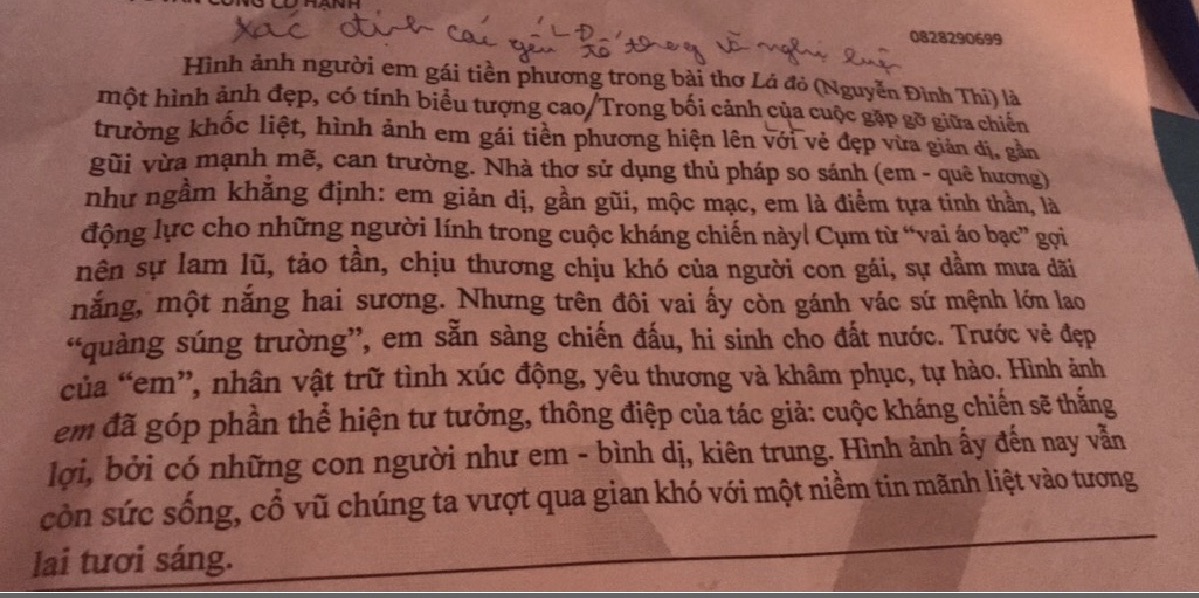 CÔNG CƯ HẠNH
Xác định các yếu tố trong văn nghị luận
LĐ
0828290699
Hình ảnh người em gái tiền phương trong bài thơ Lá đỏ (Nguyễn Đình Thi) là
một hình ảnh đẹp, có tính biểu tượng cao/Trong bối cảnh của cuộc gặp gỡ giữa chiến
trường khốc liệt, hình ảnh em gái tiền phương hiện lên với vẻ đẹp vừa giản dị, gần
gũi vừa mạnh mẽ, can trường. Nhà thơ sử dụng thủ pháp so sánh (em - quê hương)
như ngầm khẳng định: em giản dị, gần gũi, mộc mạc, em là điểm tựa tinh thần, là
động lực cho những người lính trong cuộc kháng chiến này/ Cụm từ “vai áo bạc” gợi
nên sự lam lũ, tảo tần, chịu thương chịu khó của người con gái, sự dầm mưa dãi
nắng, một nắng hai sương. Nhưng trên đôi vai ấy còn gánh vác sứ mệnh lớn lao
“quàng súng trường”, em sẵn sàng chiến đấu, hi sinh cho đất nước. Trước vẻ đẹp
của “em”, nhân vật trữ tình xúc động, yêu thương và khâm phục, tự hào. Hình ảnh
em đã góp phần thể hiện tư tưởng, thông điệp của tác giả: cuộc kháng chiến sẽ thắng
lợi, bởi có những con người như em - bình dị, kiên trung. Hình ảnh ấy đến nay vẫn
còn sức sống, cổ vũ chúng ta vượt qua gian khó với một niềm tin mãnh liệt vào tương
lai tươi sáng.